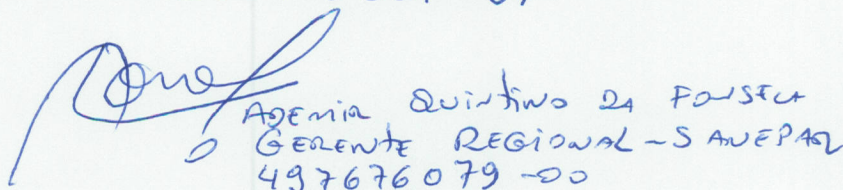 ADEMIR QUINTINO DA FONSECA
GERENTE REGIONAL - SANEPAR
497676079-00